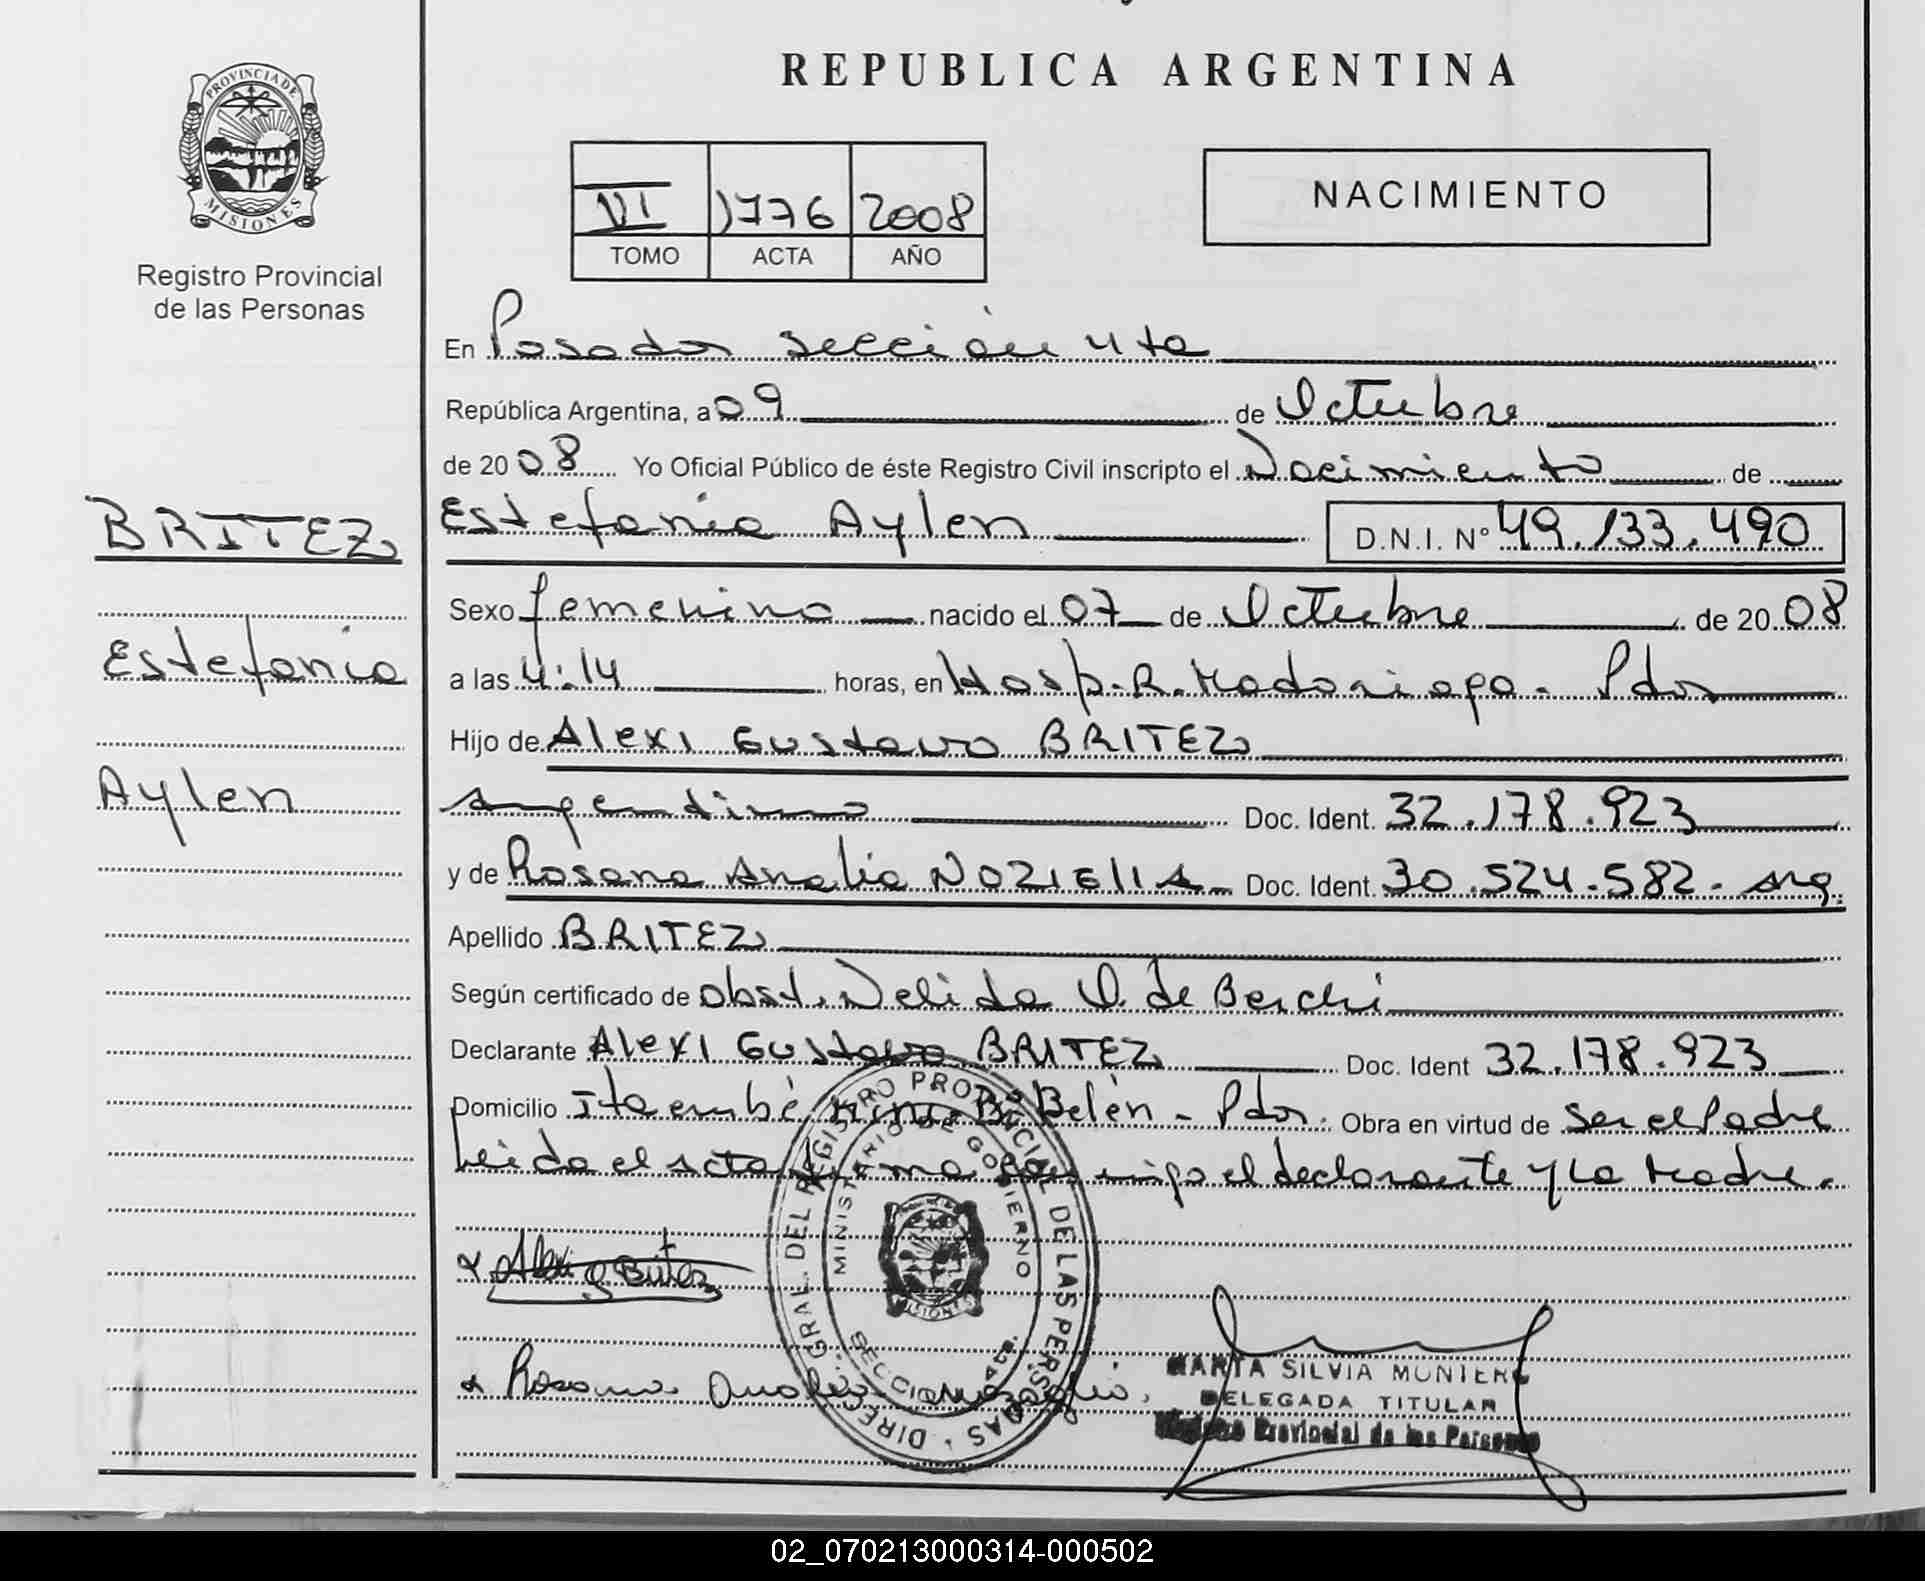 REPUBLICA ARGENTINA
PROVINCIA DE MISIONES
Registro Provincial
de las Personas
VI 1776 2008
TOMO ACTA AÑO
NACIMIENTO
En Posadas sección 4ta
República Argentina, a 09 de Octubre
de 2008 Yo Oficial Público de éste Registro Civil inscripto el Nacimiento de
Estefania Aylen D.N.I. N° 49.133.490
BRITEZ
Estefania
Aylen
Sexo femenino nacido el 07 de Octubre de 2008
a las 4:14 horas, en Hosp. R. Madariaga. Pdas
Hijo de Alexi Gustavo BRITEZ
Argentino Doc. Ident. 32.178.923
y de Rosana Analia Doc. Ident. 30.524.582. Arg.
Apellido BRITEZ
Según certificado de obst. Nelida O. de Berchi
Declarante Alexi Gustavo BRITEZ Doc. Ident 32.178.923
Domicilio Itaembé Mini Bº Belén - Pdas. Obra en virtud de Ser el Padre
Leida el acta firma conmigo el declarante y la Madre.
Alexi G Britez
Rosana Analia
DIREC. GRAL. DEL REGISTRO PROVINCIAL DE LAS PERSONAS
MINISTERIO DE GOBIERNO
SECCION 4ta.
MISIONES
MARTA SILVIA MONTERO
DELEGADA TITULAR
Registro Provincial de las Personas
02_070213000314-000502